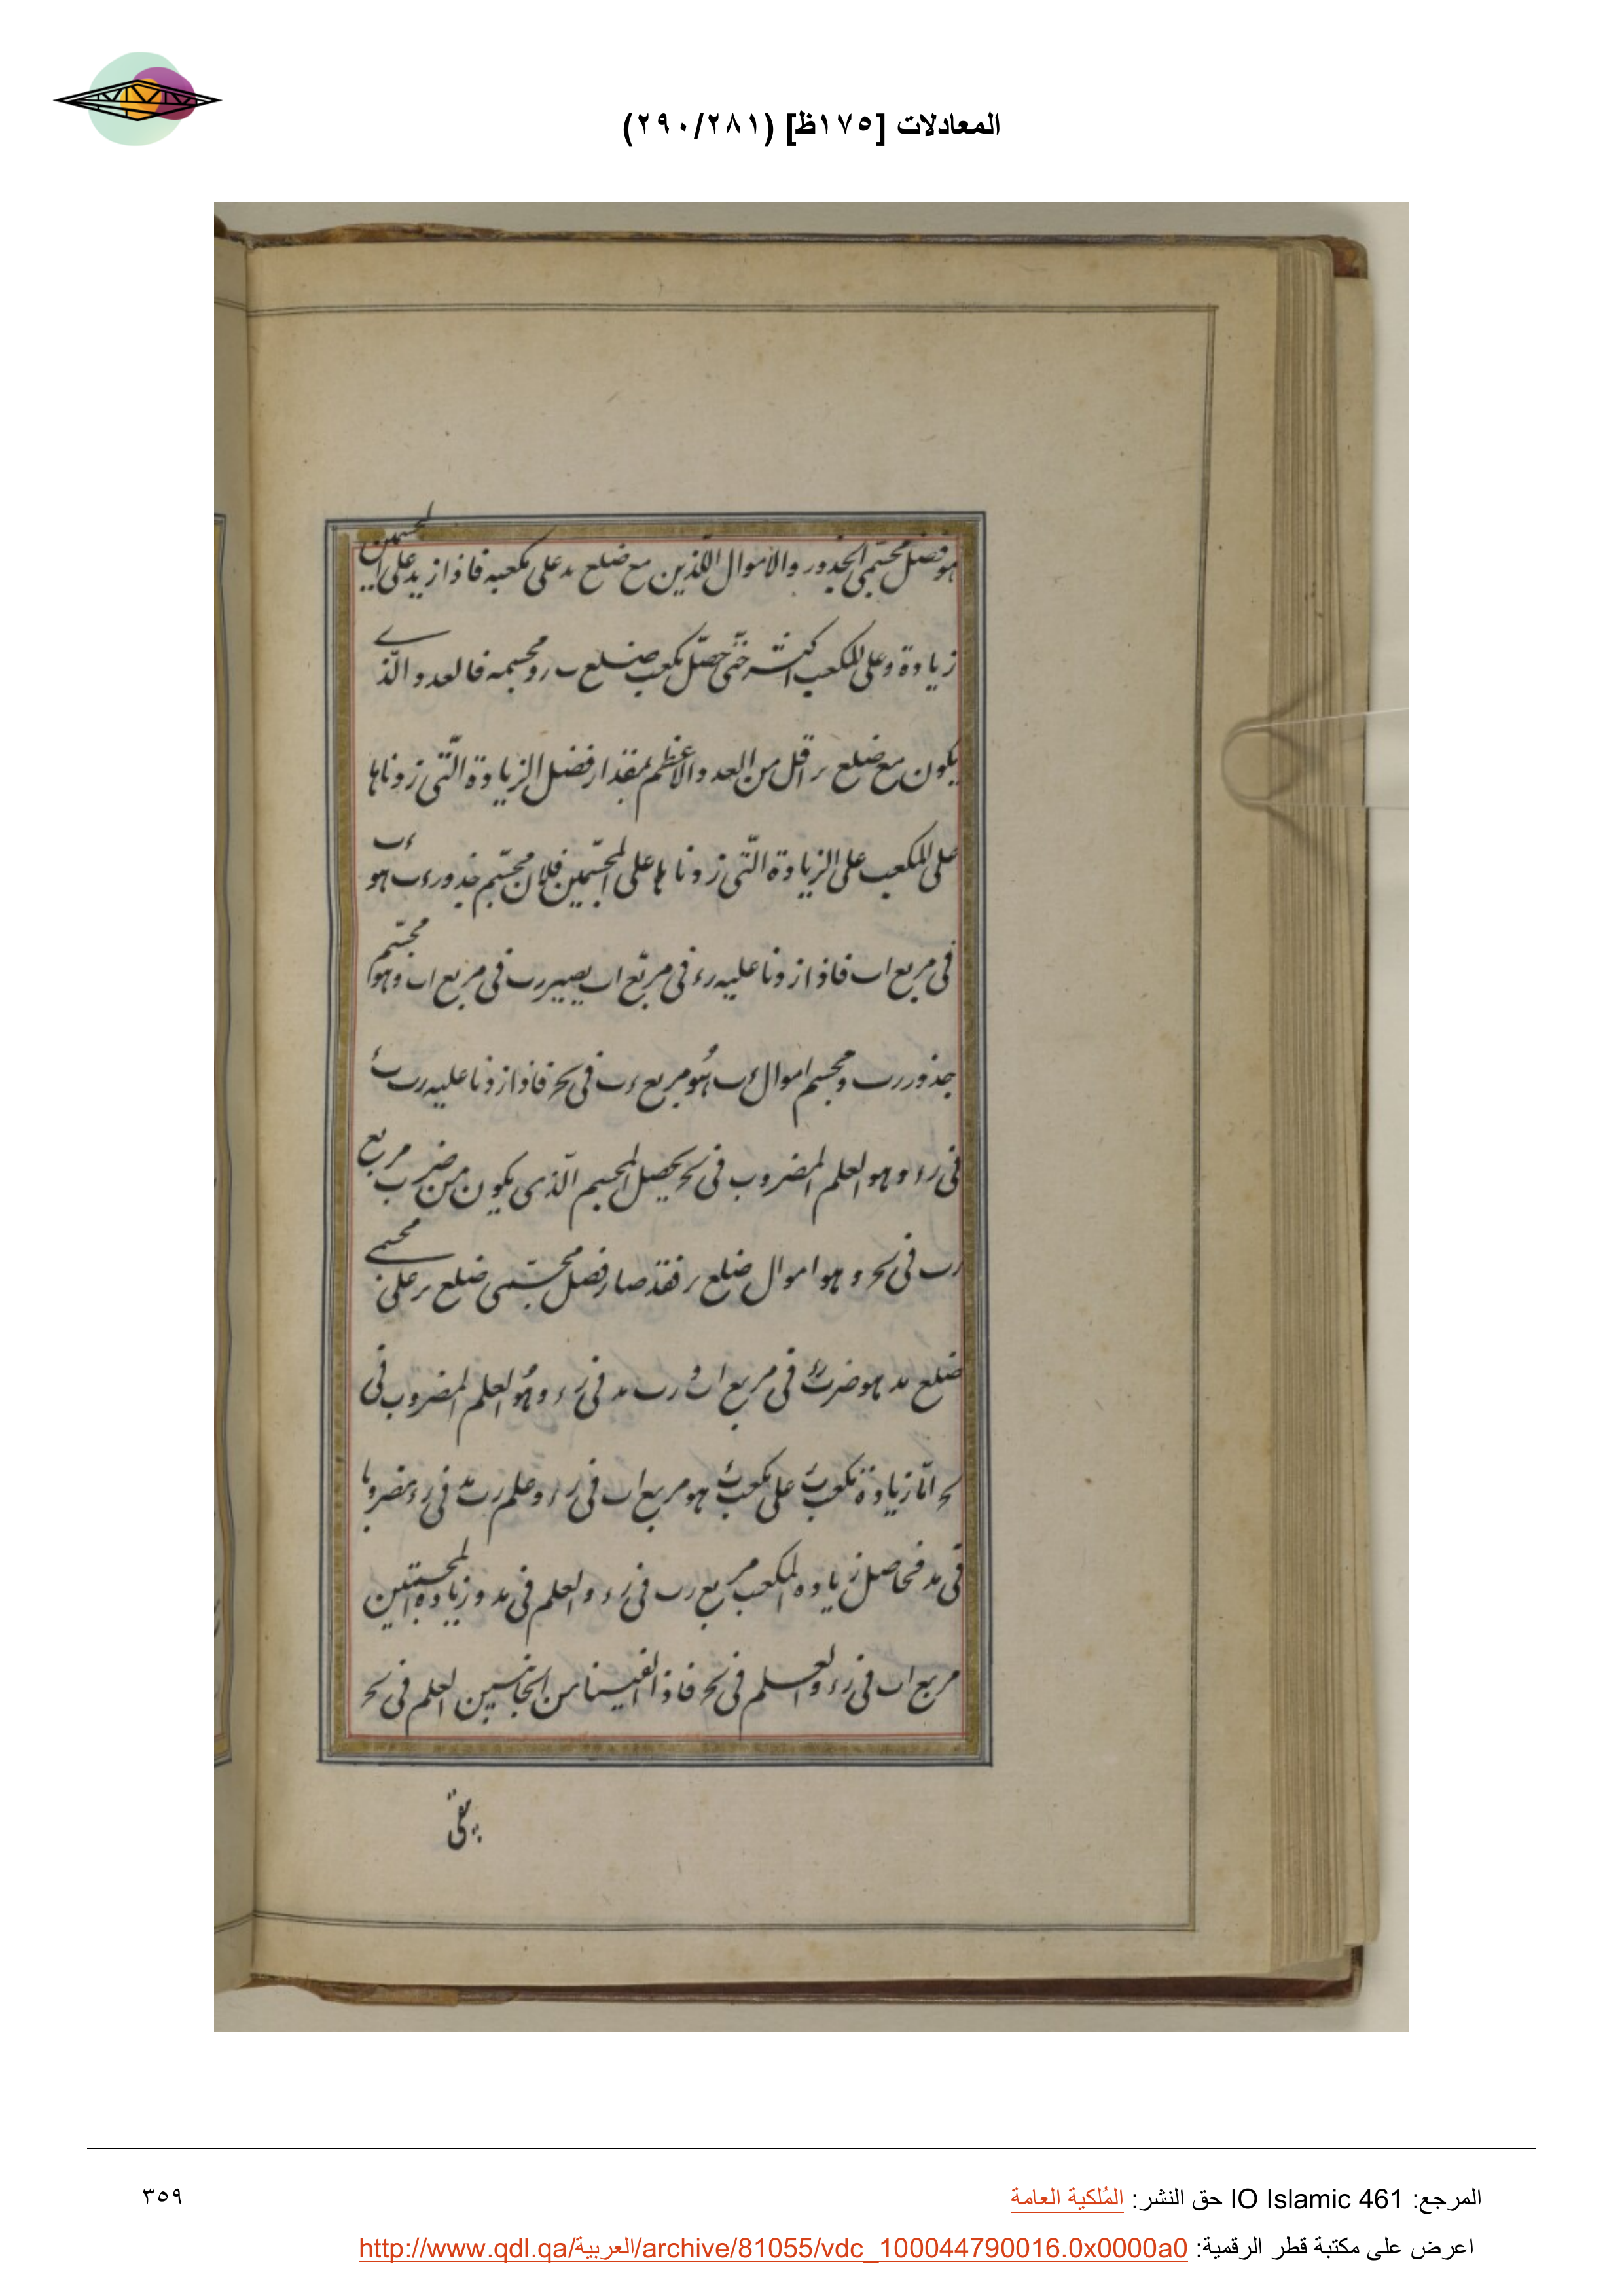 المعادلات [١٧٥ظ] (٢٩٠/٢٨١)
هو فضل مجسمى الجذور والاموال اللذين مع ضلع ىد على مكعبه فاذا زيد على المجسمين
زيادة وعلى المكعب اكثر حتى حصل مكعب ضلع ب ر ومجسمه فالعدد الذى
يكون مع ضلع ىر اقل من العدد الاعظم بمقدار فضل الزيادة التى زدناها
على المكعب على الزيادة التى زدناها على المجسمين فلان مجسم جذور ءب هو ءب
فى مربع اب فاذا زدنا عليه رء فى مربع اب يصير رب فى مربع اب وهو مجسم
جذور رب ومجسم اموال ءب هو مربع ءب فى ىح فاذا زدنا عليه رب ىء
فى رء وهو العلم المضروب فى ىح يحصل المجسم الذى يكون من ضرب مربع
رب فى ىح وهو اموال ضلع ىر فقد صار فضل مجسمى ضلع ىر على مجسمى
ضلع ىد هو ضرب رء فى مربع اب و رب ىد فى رء وهو العلم المضروب فى
ىح اما زيادة مكعب على مكعب هو مربع اب فى رء وعلم رب ىد فى رء مضروبا
فى ىد فحاصل زياده المكعب مربع رب فى رء والعلم فى ىد وزيادة المجسمين
مربع اب فى رء والعلم فى ىح فاذا القينا من الجانبين العلم فى ىح
يبقى
المرجع: IO Islamic 461 حق النشر: المُلكية العامة
٣٥٩
اعرض على مكتبة قطر الرقمية: http://www.qdl.qa/العربية/archive/81055/vdc_100044790016.0x0000a0